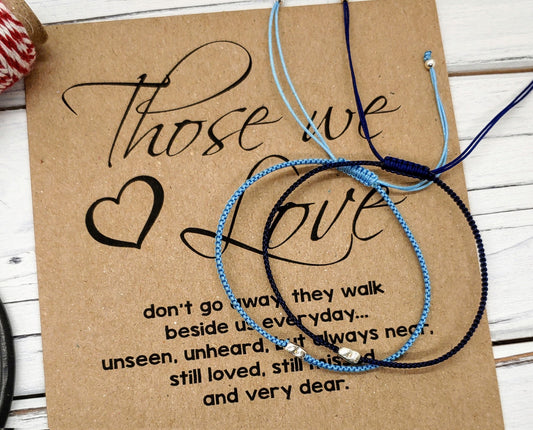 Those we
Love
don't go away, they walk
beside us everyday...
unseen, unheard, but always near,
still loved, still missed
and very dear.